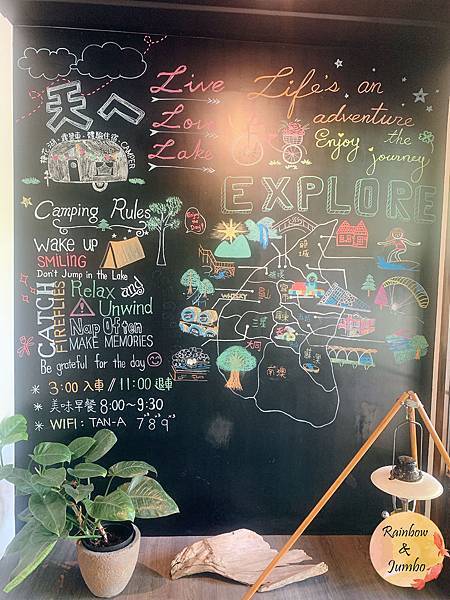 天ㄟ
CAMPER
Live
Love
Lake
Life's an
adventure
Enjoy the
journey
EXPLORE
Camping Rules
wake up
SMILING
Don't Jump in the Lake
CATCH
FIREFLIES
Relax and
Unwind
Nap Often
MAKE MEMORIES
Be grateful for the day
* 3:00 入車 // 11:00 退車
* 美味早餐 8:00~9:30
* WIFI : TAN-A 7"8"9"
頭城
WHISKY
三星
大同
南澳
Rainbow
&
Jumbo